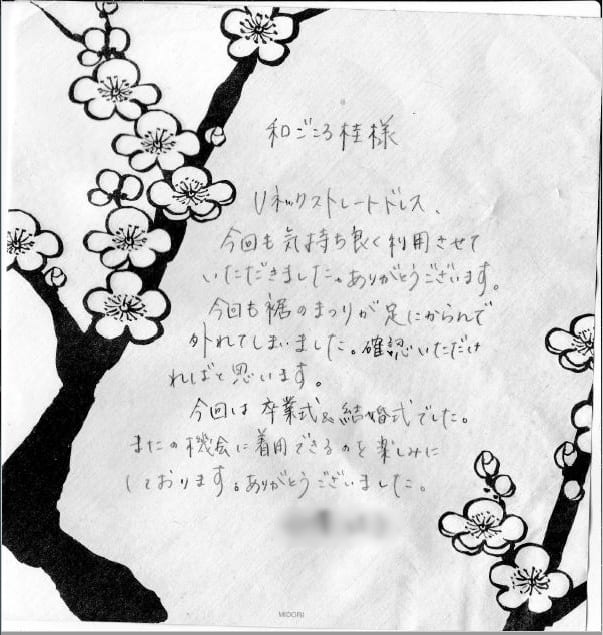 和ごころ桂様
Uネックストレートドレス、
今回も気持ち良く利用させて
いただきました。ありがとうございます。
今回も裾のまつりが足にからんで
外れてしまいました。確認いただけ
ればと思います。
今回は卒業式&結婚式でした。
またの機会に着用できるのを楽しみに
しております。ありがとうございました。
MIDORI